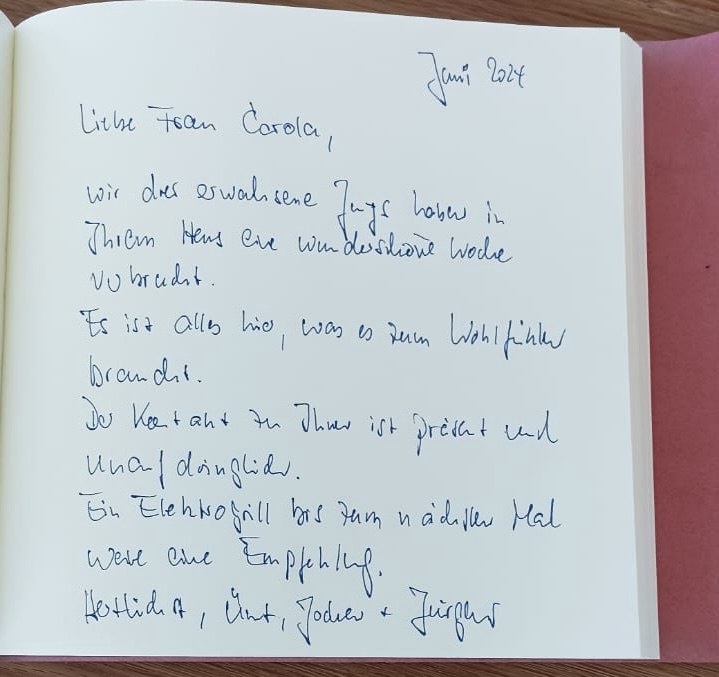 Juni 2024
Liebe Frau Carola,
wir drei erwachsene Jungs haben in
Ihrem Haus eine wunderschöne Woche
verbracht.
Es ist alles hier, was es zum Wohlfühlen
braucht.
Der Kontakt zu Ihnen ist präsent und
unaufdringlich.
Ein Elektrogrill bis zum nächsten Mal
wäre eine Empfehlung.
Herzlichst, Jochen + Jürgen